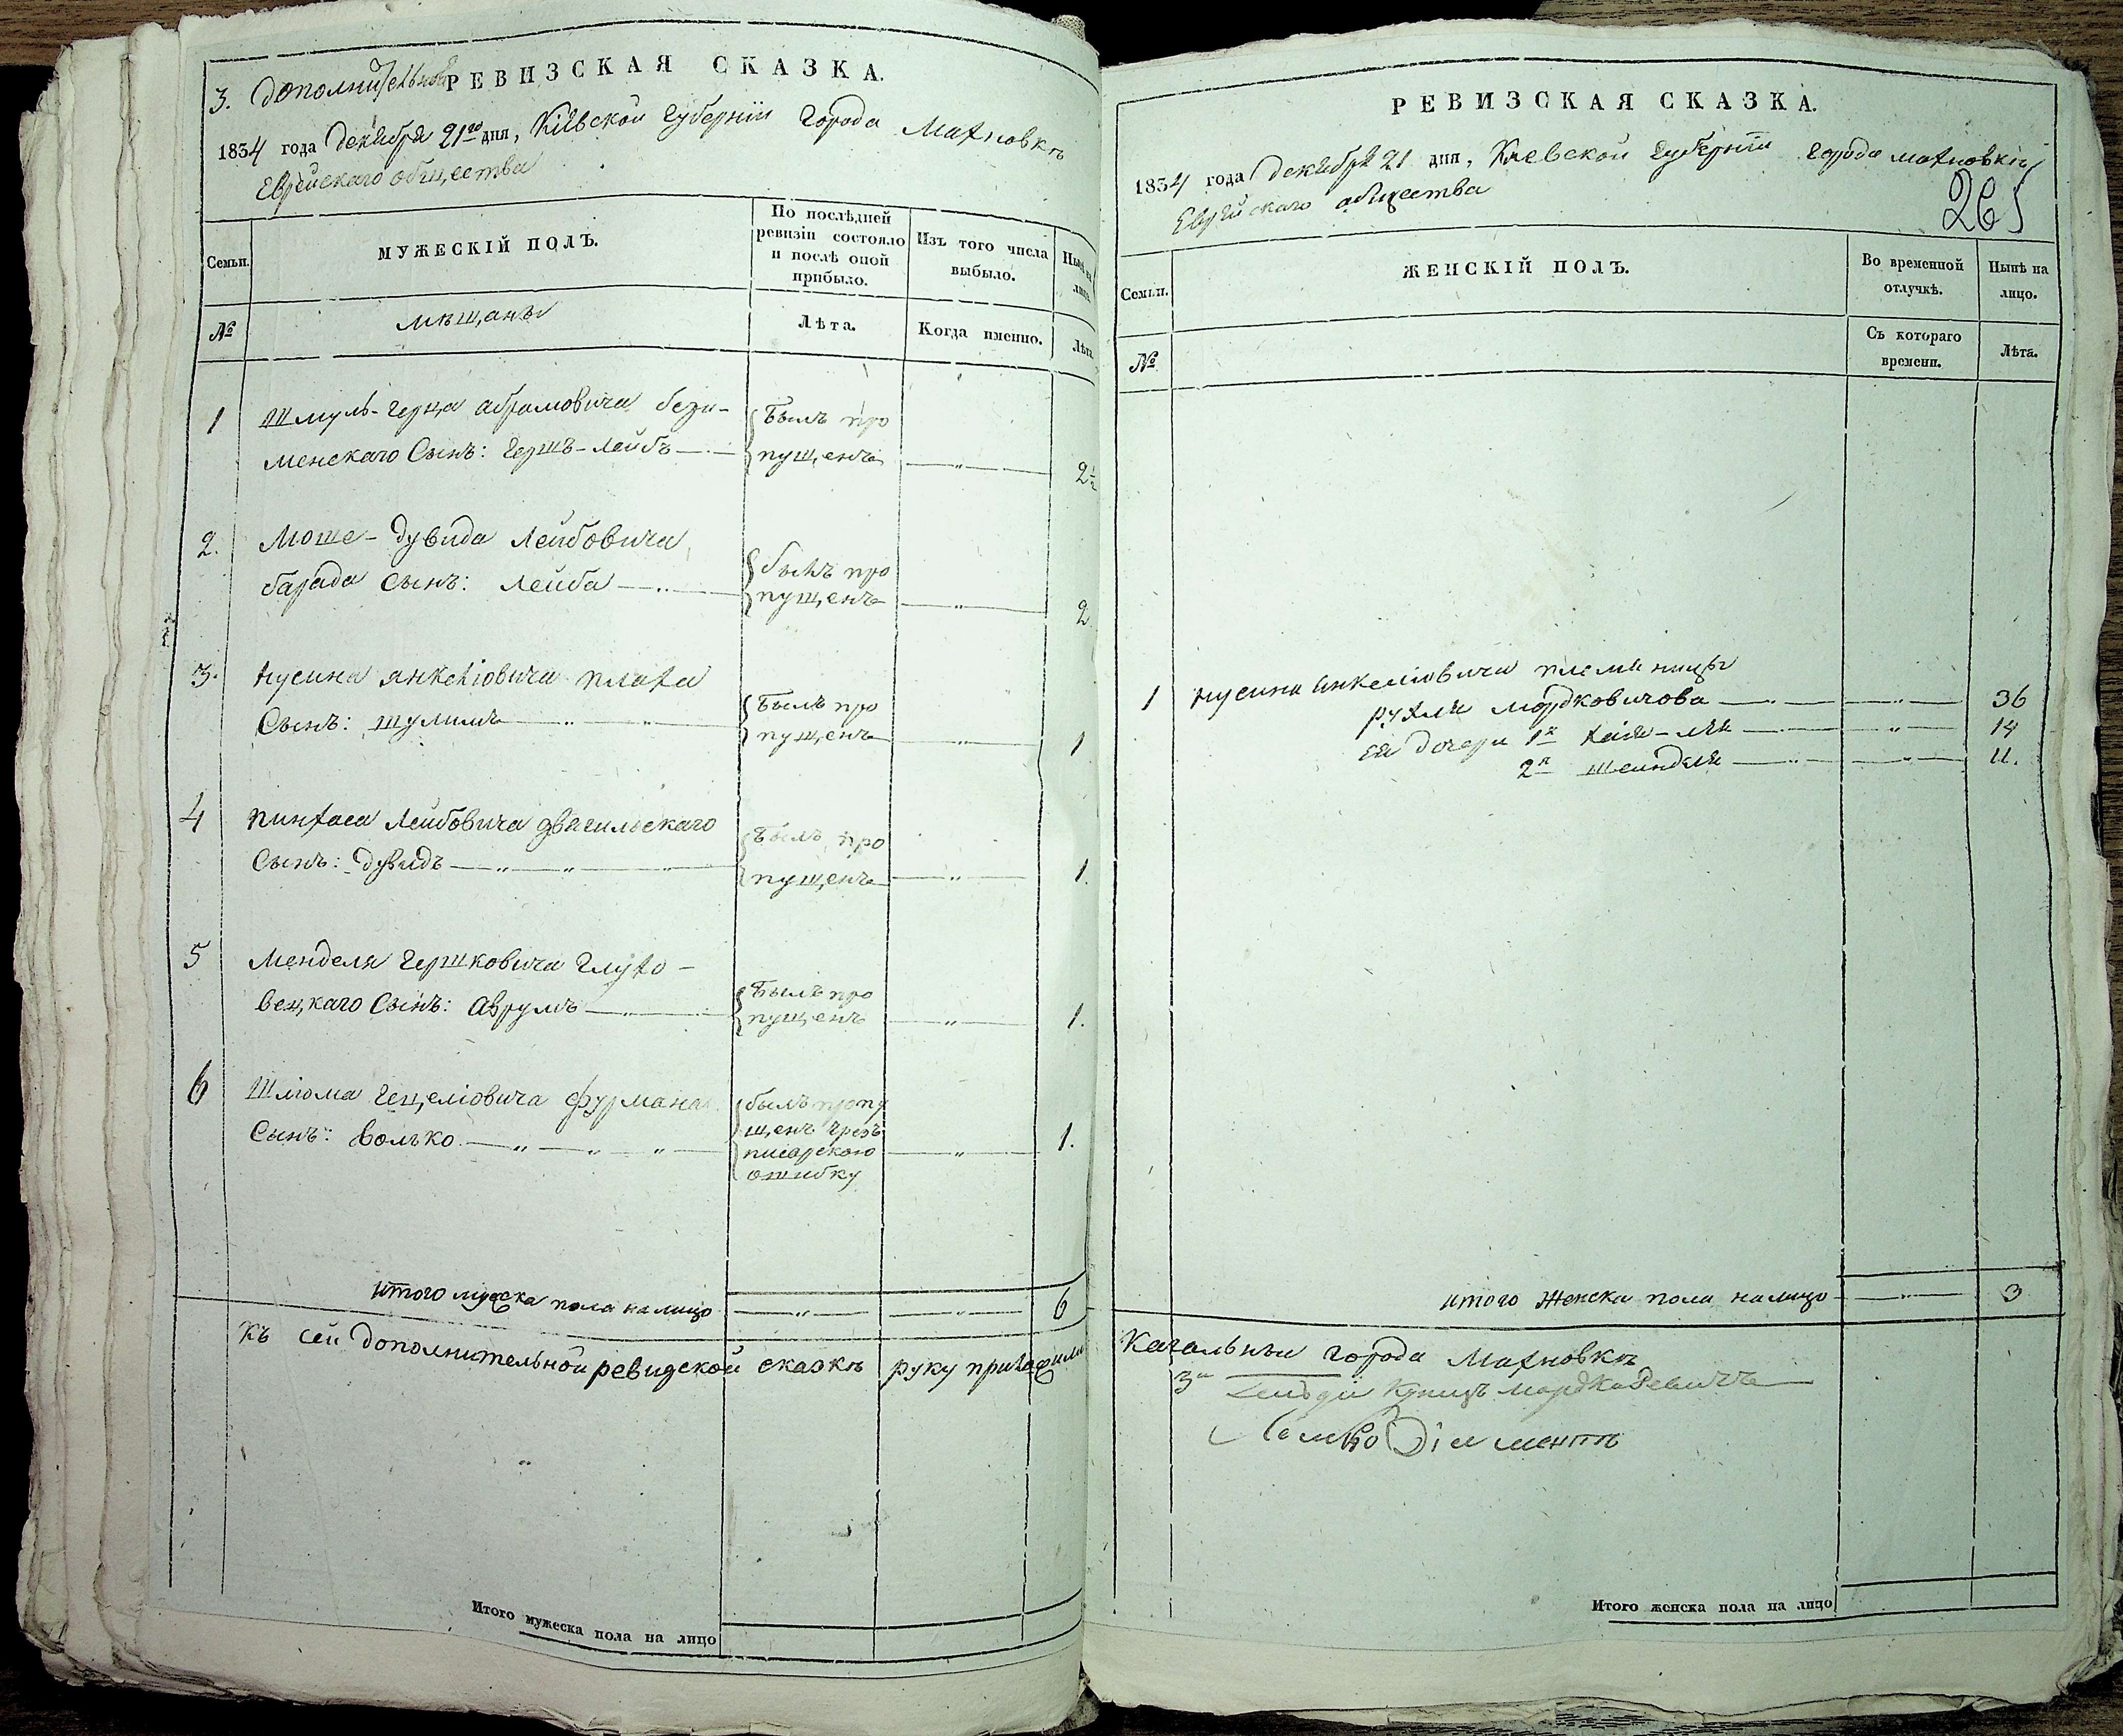 3. дополнительная РЕВИЗСКАЯ СКАЗКА.
1834 года декабря 21го дня, Кіевской губерніи города Махновкѣ
Еврейскаго общества
Семьи.
МУЖЕСКІЙ ПОЛЪ.
По послѣдней
ревизіи состояло
и послѣ оной
прибыло.
Изъ того числа
выбыло.
Нынѣ на
лицо.
№
мѣщаны
Лѣта.
Когда именно.
Лѣта.
1 Шмуль-герца абрамовича бези-
менскаго Сынъ: гершъ-лейбъ
былъ про
пущенъ
2½
2. Моше-дувида лейбовича
барада Сынъ: лейба
былъ про
пущенъ
2
3. нусина янкеліовича плата
Сынъ: шулимъ
былъ про
пущенъ
1
4 пинхаса лейбовича двагильскаго
Сынъ: дувидъ
былъ про
пущенъ
1.
5 менделя гершковича глухо-
вецкаго Сынъ: аврумъ
былъ про
пущенъ
1.
6 Шліома гецеліовича фурмана
Сынъ: волько
былъ пропу
щенъ чрезъ
писарскою
ошибку
1.
итого мужска пола на лицо 6
Къ сей дополнительной ревизской сказкѣ руку приложили
Итого мужеска пола на лицо
РЕВИЗСКАЯ СКАЗКА.
1834 года декабря 21 дня, Кіевской губерніи города махновкѣ
Еврейскаго общества
265
Семьи.
ЖЕНСКІЙ ПОЛЪ.
Во временной
отлучкѣ.
Нынѣ на
лицо.
№
Съ котораго
времени.
Лѣта.
1 нусина янкеліовича племяницы
рухля мордковичова 36
ея дочери 1я хая-лея 14
2я шейндля 11.
итого женска пола налицо 3
Кагальныи города Махновкѣ
3й гильдіи купецъ
Итого женска пола на лицо